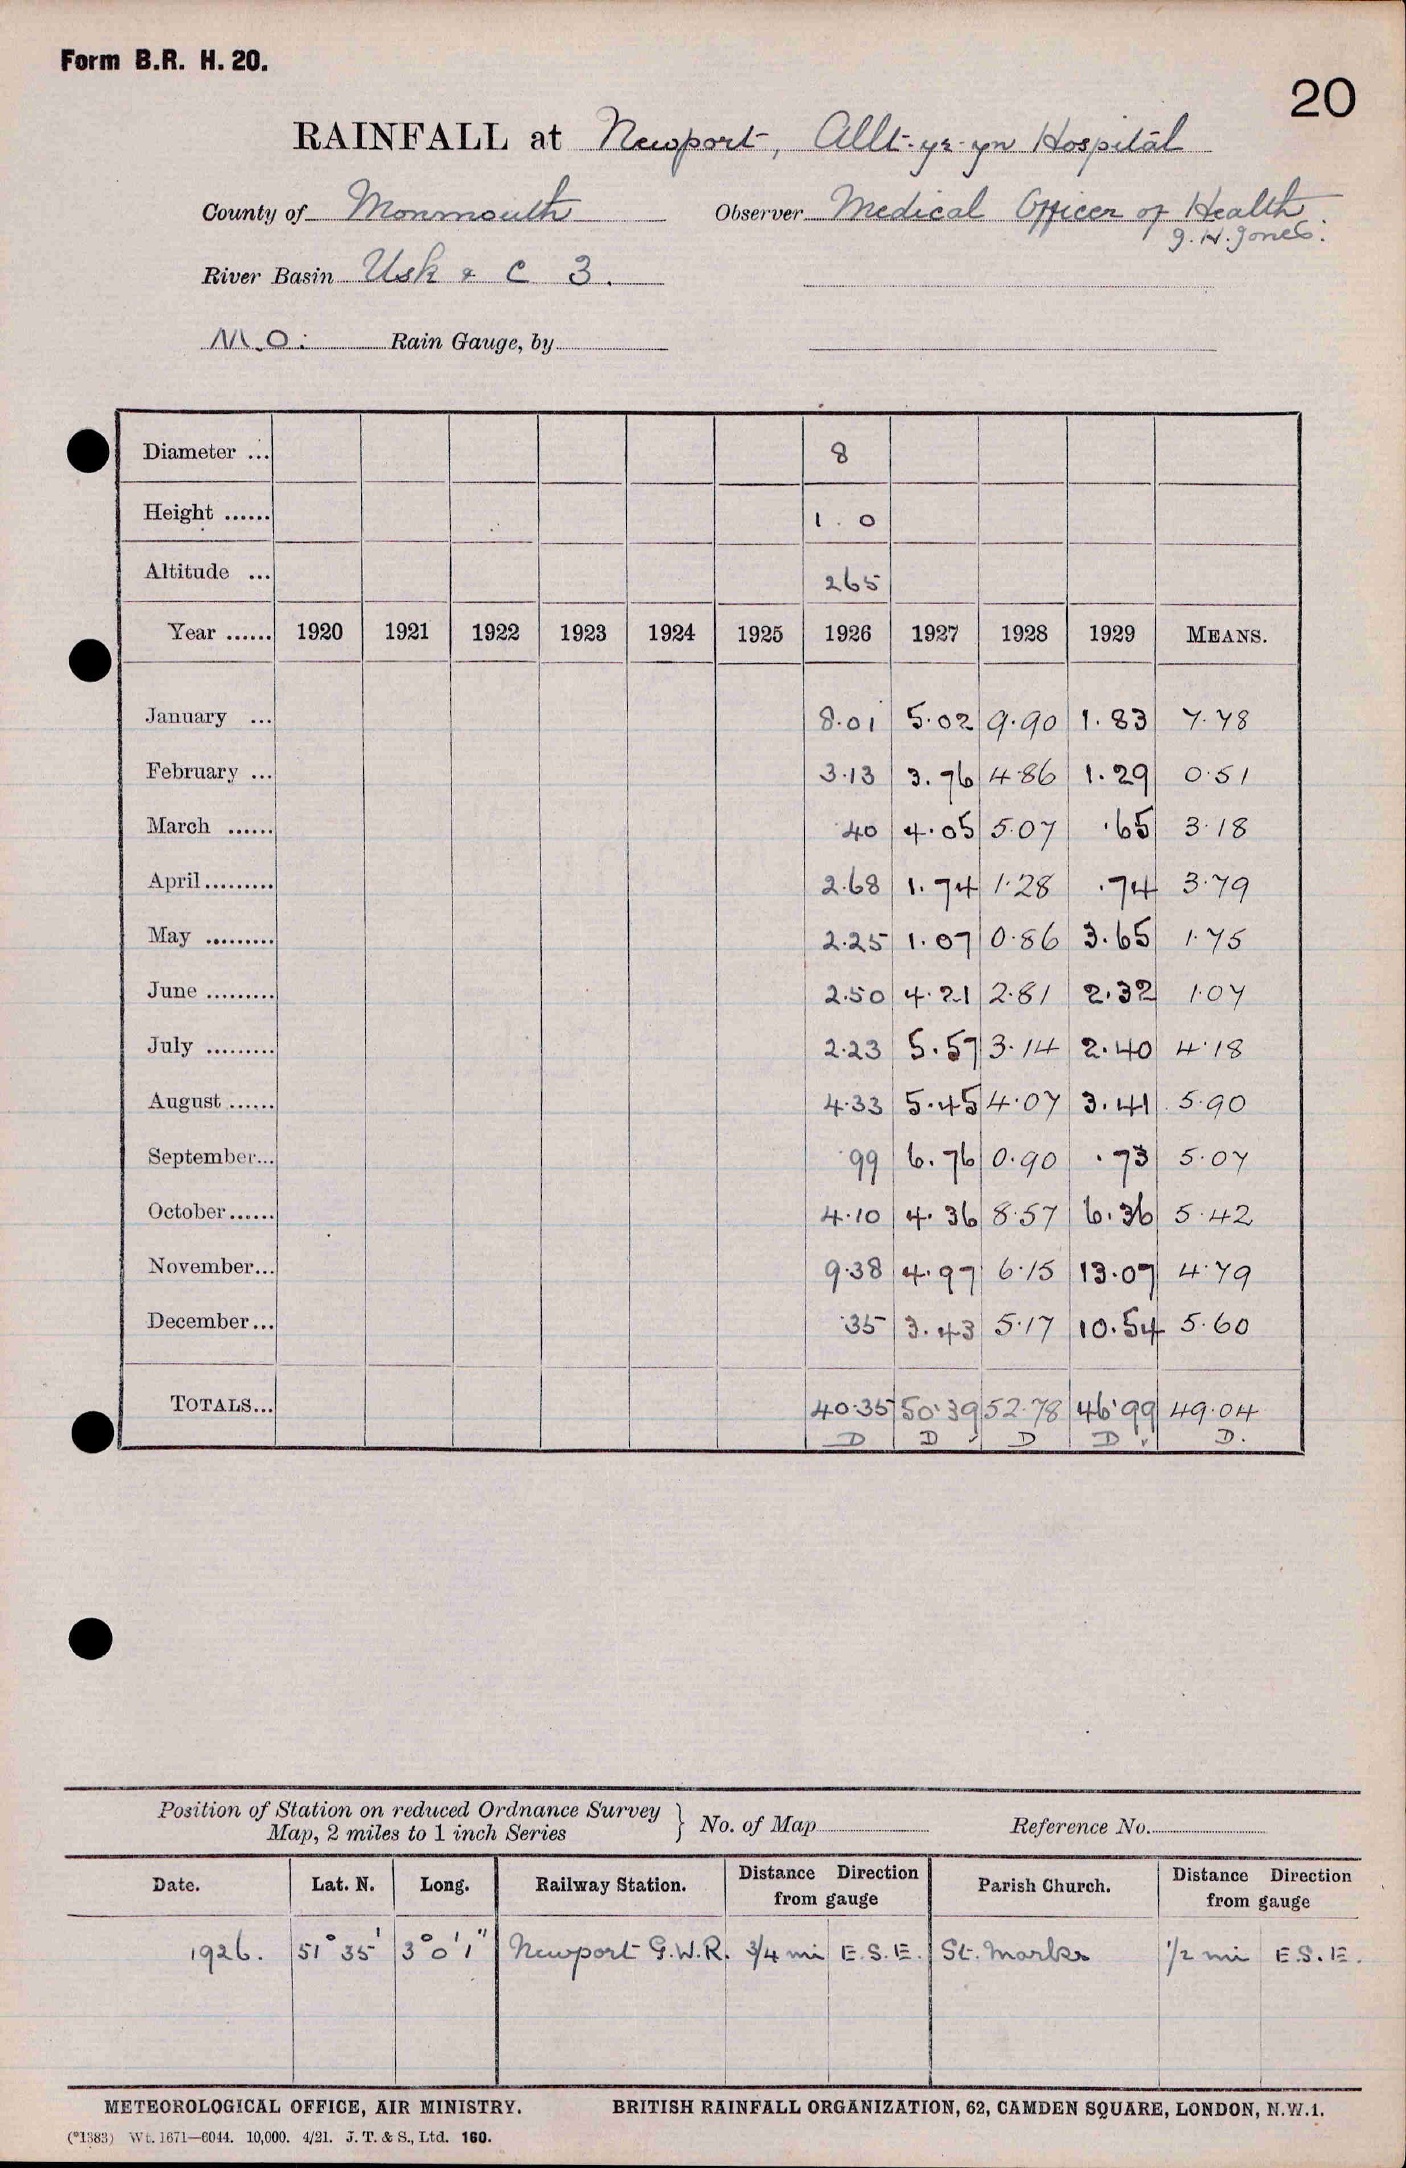 Form B.R. H. 20.
20
RAINFALL at Newport, Allt-yr-yn Hospital
County of Monmouth Observer Medical Officer of Health
J. H. Jones.
River Basin Usk & C 3.
M.O. Rain Gauge, by
Diameter ... 8
Height ...... 1. 0
Altitude ... 265
Year ...... 1920 1921 1922 1923 1924 1925 1926 1927 1928 1929 MEANS.
January ... 8.01 5.02 9.90 1.83 7.78
February ... 3.13 3.76 4.86 1.29 0.51
March ...... .40 4.05 5.07 .65 3.18
April ......... 2.68 1.74 1.28 .74 3.79
May ......... 2.25 1.07 0.86 3.65 1.75
June ......... 2.50 4.21 2.81 2.32 1.07
July ......... 2.23 5.57 3.14 2.40 4.18
August ...... 4.33 5.45 4.07 3.41 5.90
September... .99 6.76 0.90 .73 5.07
October ...... 4.10 4.36 8.57 6.36 5.42
November... 9.38 4.97 6.15 13.07 4.79
December... .35 3.43 5.17 10.54 5.60
TOTALS... 40.35 50.39 52.78 46.99 49.04
D D D D D.
Position of Station on reduced Ordnance Survey
Map, 2 miles to 1 inch Series } No. of Map Reference No.
Date. Lat. N. Long. Railway Station. Distance Direction from gauge Parish Church. Distance Direction from gauge
1926. 51° 35' 3° 0' 1" Newport G.W.R. 3/4 mi E.S.E. St. Marks 1/2 mi E.S.E.
METEOROLOGICAL OFFICE, AIR MINISTRY. BRITISH RAINFALL ORGANIZATION, 62, CAMDEN SQUARE, LONDON, N.W.1.
(*1383) Wt. 1671—6044. 10,000. 4/21. J. T. & S., Ltd. 160.